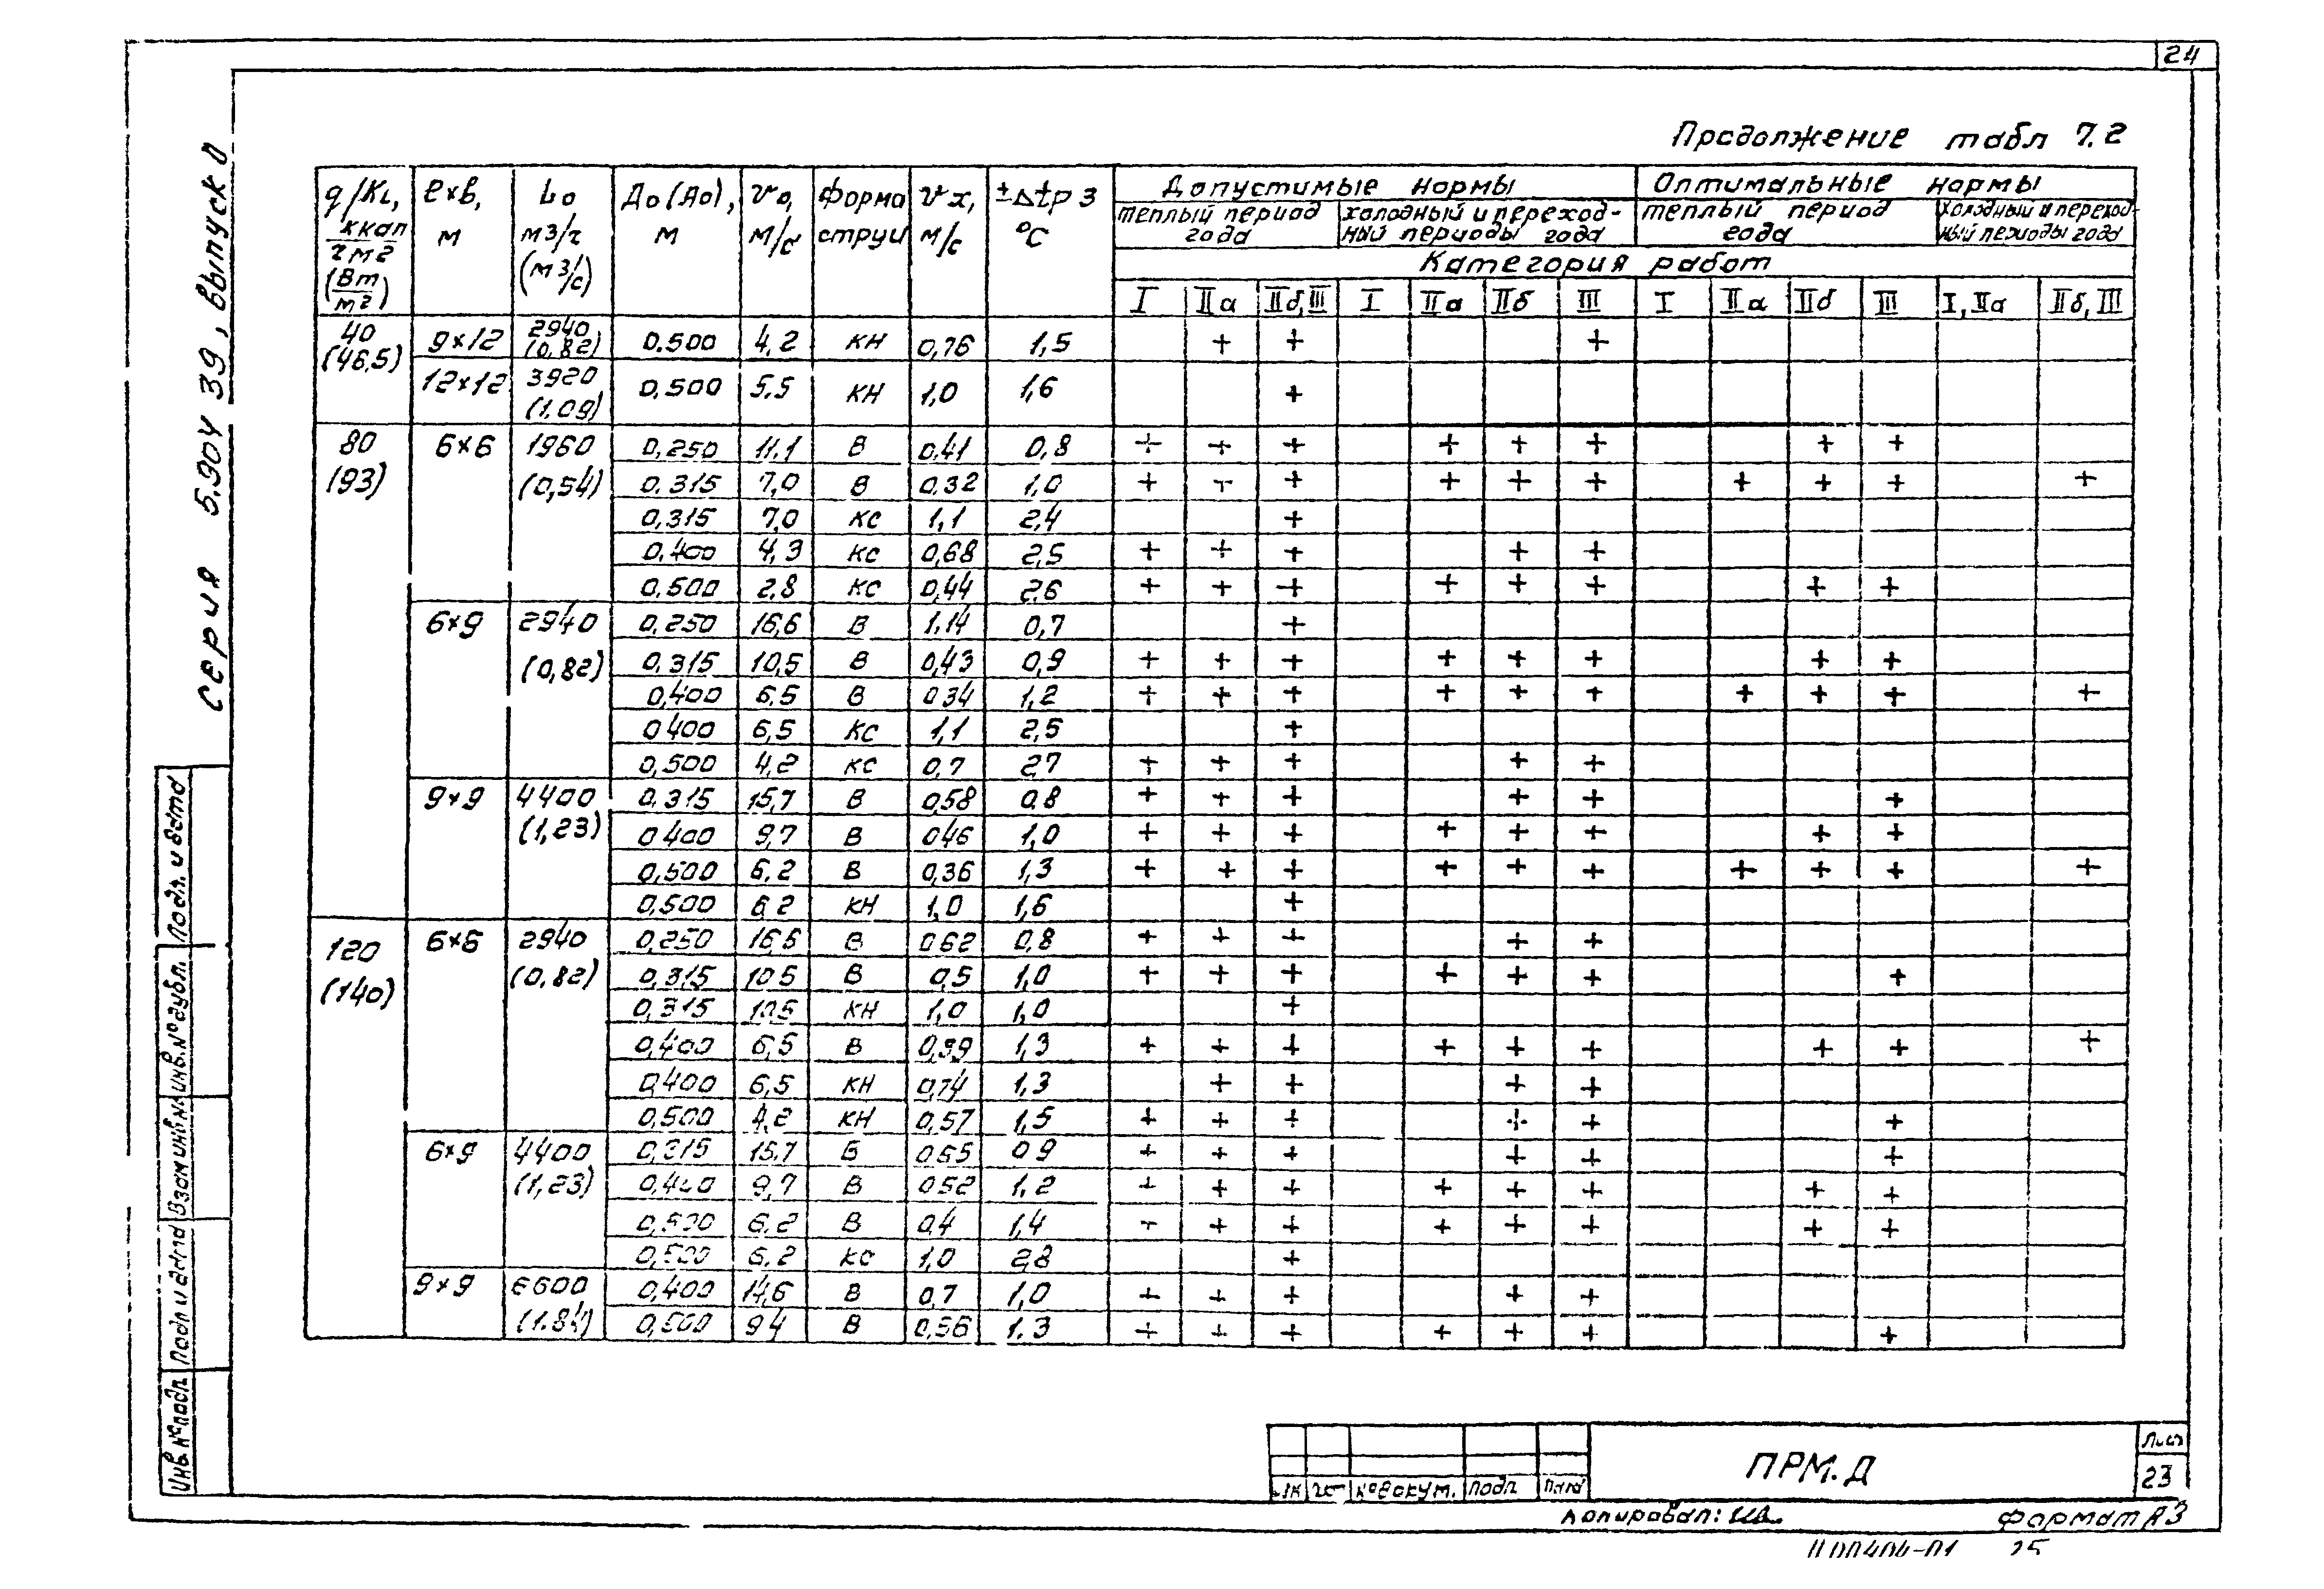 24
Продолжение табл 7.2
Серия 5.904 39, выпуск 0
q/KL, ккал/чм² (Вт/м²) | ℓ×в, м | Lо м3/ч (м3/с) | До(Ао), м | vо, м/с | Форма струи | vx, м/с | ±Δtр з °С | Допустимые нормы | Оптимальные нормы
теплый период года | холодный и переходный периоды года | теплый период года | холодный и переходный периоды года
Категория работ
I | IIа | IIб,III | I | IIа | IIб | III | I | IIа | IIб | III | I, IIа | IIб, III
40 (46,5) | 9×12 | 2940 (0,82) | 0.500 | 4,2 | КН | 0,76 | 1,5 | | + | + | | | | + | | | | | |
12×12 | 3920 (1,09) | 0,500 | 5,5 | КН | 1,0 | 1,6 | | | + | | | | | | | | | |
80 (93) | 6×6 | 1960 (0,54) | 0,250 | 11,1 | В | 0,41 | 0,8 | + | + | + | | + | + | + | | | + | + | |
0.315 | 7,0 | В | 0,32 | 1,0 | + | + | + | | + | + | + | | + | + | + | | +
0,315 | 7,0 | КС | 1,1 | 2,4 | | | + | | | | | | | | | |
0,400 | 4,3 | КС | 0,68 | 2,5 | + | + | + | | | + | + | | | | | |
0,500 | 2,8 | КС | 0,44 | 2,6 | + | + | + | | + | + | + | | | + | + | |
6×9 | 2940 (0,82) | 0,250 | 16,6 | В | 1,14 | 0,7 | | | + | | | | | | | | | |
0,315 | 10,5 | В | 0,43 | 0,9 | + | + | + | | + | + | + | | | + | + | |
0,400 | 6,5 | В | 0 34 | 1,2 | + | + | + | | + | + | + | | + | + | + | | +
0 400 | 6,5 | КС | 1,1 | 2,5 | | | + | | | | | | | | | |
0,500 | 4,2 | КС | 0,7 | 27 | + | + | + | | | + | + | | | | | |
9×9 | 4400 (1,23) | 0,315 | 15,7 | В | 0,58 | 0,8 | + | + | + | | | + | + | | | | + | |
0 400 | 9,7 | В | 046 | 1,0 | + | + | + | | + | + | + | | | + | + | |
0,500 | 6,2 | В | 0,36 | 1,3 | + | + | + | | + | + | + | | + | + | + | | +
0,500 | 6,2 | КН | 1,0 | 1,6 | | | + | | | | | | | | | |
120 (140) | 6×6 | 2940 (0,82) | 0,250 | 16,6 | В | 062 | 0,8 | + | + | + | | | + | + | | | | | |
0,315 | 10 5 | В | 0,5 | 1,0 | + | + | + | | + | + | + | | | | + | |
0,315 | 10,5 | КН | 1,0 | 1,0 | | | + | | | | | | | | | |
0,400 | 6,5 | В | 0,39 | 1,3 | + | + | + | | + | + | + | | | + | + | | +
0,400 | 6,5 | КН | 0,74 | 1,3 | | + | + | | | + | + | | | | | |
0,500 | 4,2 | КН | 0,57 | 1,5 | + | + | + | | | + | + | | | | + | |
6×9 | 4400 (1,23) | 0,315 | 15,7 | В | 0,65 | 0 9 | + | + | + | | | + | + | | | | + | |
0,400 | 9,7 | В | 052 | 1,2 | + | + | + | | + | + | + | | | + | + | |
0,500 | 6,2 | В | 0,4 | 1,4 | + | + | + | | + | + | + | | | + | + | |
0,500 | 6,2 | КС | 1,0 | 2,8 | | | + | | | | | | | | | |
9×9 | 6600 (1.84) | 0,400 | 14,6 | В | 0,7 | 1,0 | + | + | + | | | + | + | | | | | |
0,500 | 9 4 | В | 0,56 | 1.3 | + | + | + | | + | + | + | | | | + | |
Подп. и дата
Инв. № дубл.
Взам инв №
Подп и дата
Инв. № подл
№ докум. Подп
ПРМ.Д
Лист
23
Копировал:
Формат А3
1100404-01 25